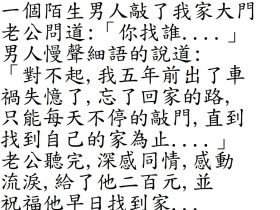 一個陌生男人敲了我家大門
老公問道:「你找誰....」
男人慢聲細語的說道:
「對不起,我五年前出了車
禍失憶了,忘了回家的路,
只能每天不停的敲門,直到
找到自己的家為止....」
老公聽完,深感同情,感動
流淚,給了他二百元,並
祝福他早日找到家...